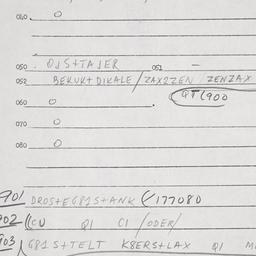 040. O
050. OJS+TAJER 051 —
052 BEKUK+DIKALE/ZAX2ZEN ZENZAX
QT(900
060 O
070 O
080 O
901 DROS+E681S+ANK (/177080
902 ((CU QI CI /ODER/
903 681S+TELT K8ERS+LAX QI